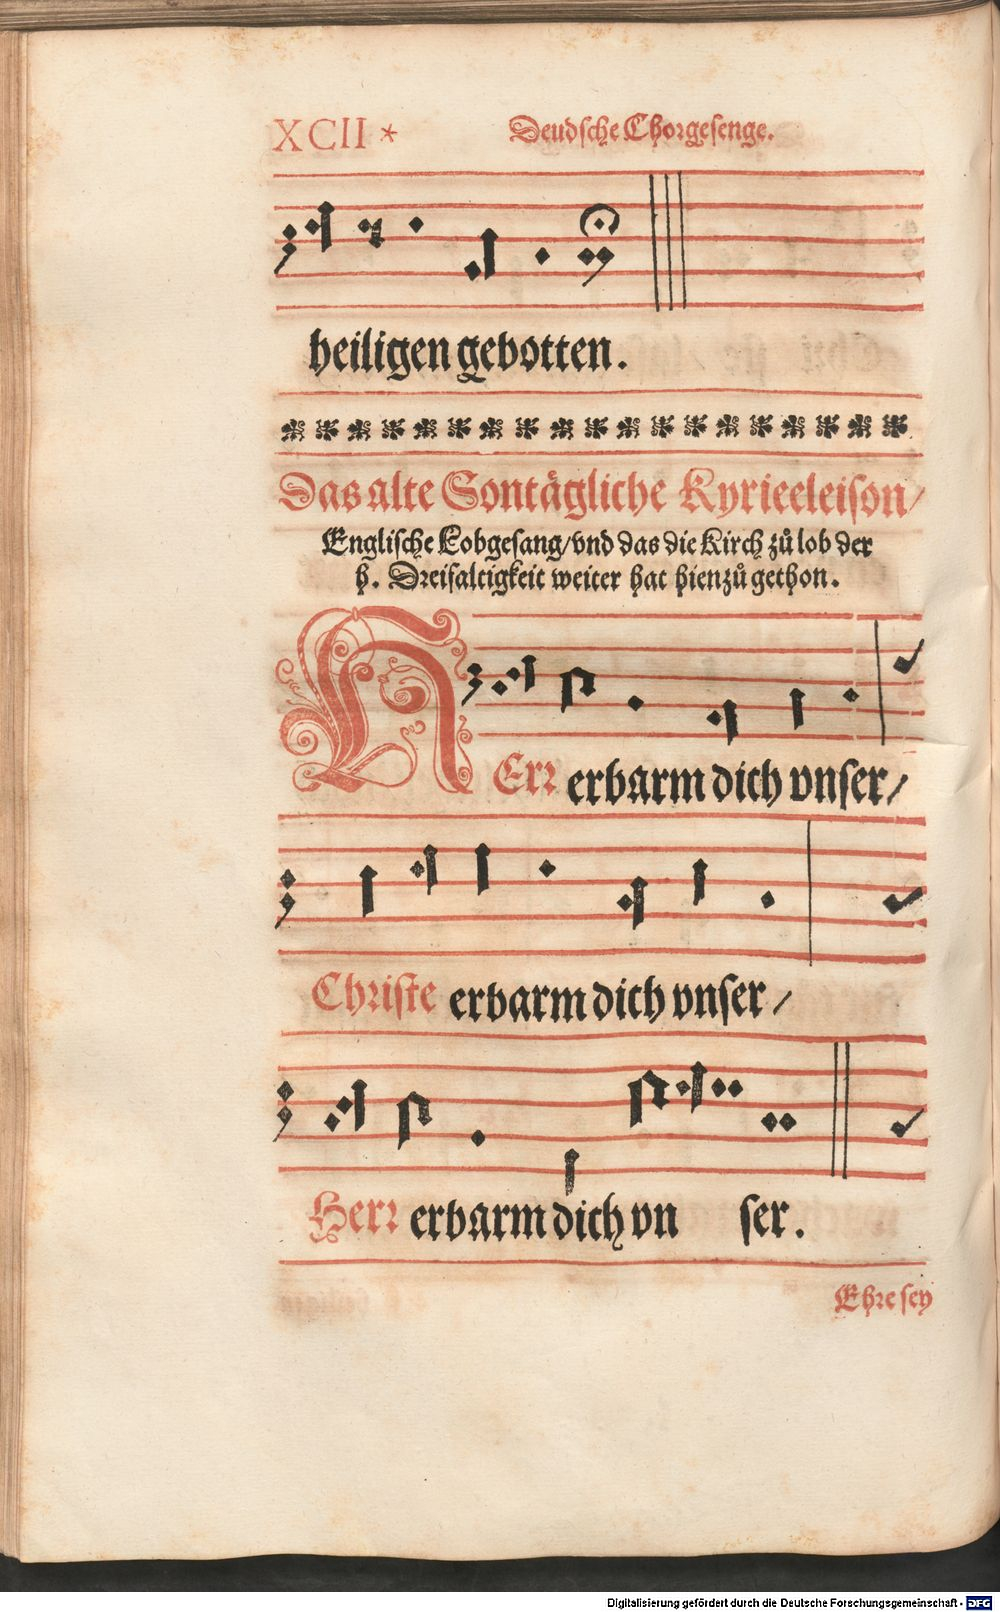 XCII *
Deudsche Chorgesenge.
heiligen gebotten.
Das alte Sontägliche Kyrieeleison/
Englische Lobgesang/vnd das die Kirch zů lob der
h. Dreifaltigkeit weiter hat hienzů gethon.
HErr erbarm dich vnser/
Christe erbarm dich vnser/
Herr erbarm dich vn ser.
Ehre sey
Digitalisierung gefördert durch die Deutsche Forschungsgemeinschaft - DFG